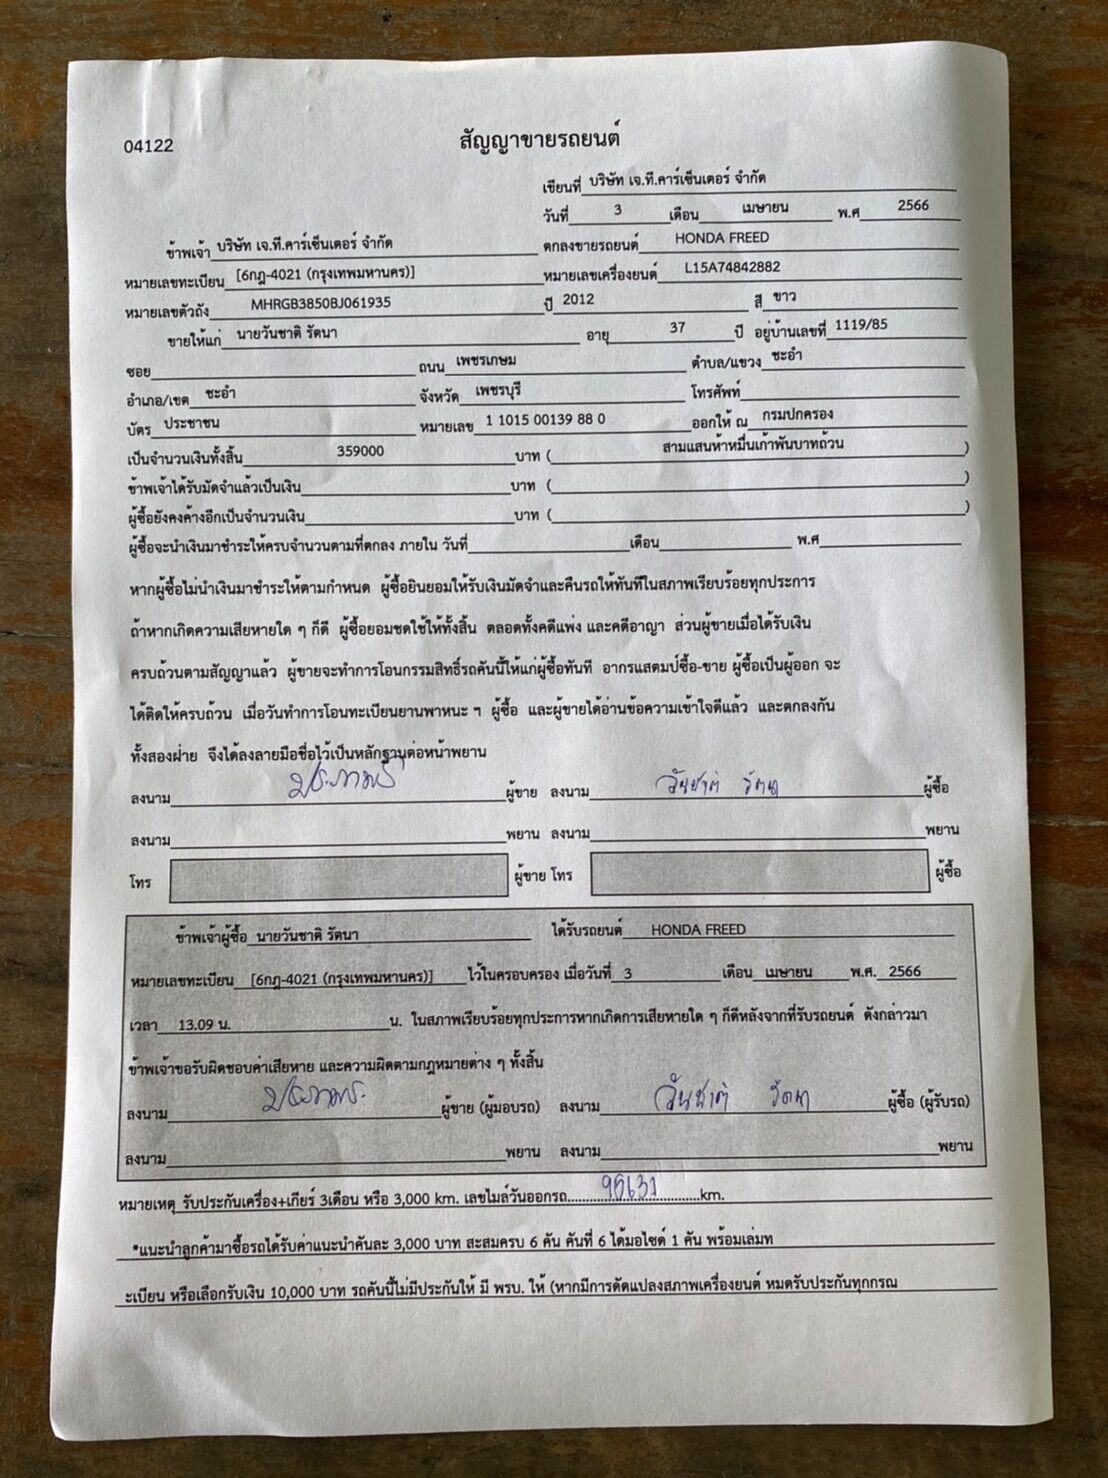 04122
สัญญาขายรถยนต์
เขียนที่ บริษัท เจ.ที.คาร์เซ็นเตอร์ จำกัด
วันที่ 3 เดือน เมษายน พ.ศ 2566
ข้าพเจ้า บริษัท เจ.ที.คาร์เซ็นเตอร์ จำกัด ตกลงขายรถยนต์ HONDA FREED
หมายเลขทะเบียน [6กฎ-4021 (กรุงเทพมหานคร)] หมายเลขเครื่องยนต์ L15A74842882
หมายเลขตัวถัง MHRGB3850BJ061935 ปี 2012 สี ขาว
ขายให้แก่ นายวันชาติ รัตนา อายุ 37 ปี อยู่บ้านเลขที่ 1119/85
ซอย ถนน เพชรเกษม ตำบล/แขวง ชะอำ
อำเภอ/เขต ชะอำ จังหวัด เพชรบุรี โทรศัพท์
บัตร ประชาชน หมายเลข 1 1015 00139 88 0 ออกให้ ณ กรมปกครอง
เป็นจำนวนเงินทั้งสิ้น 359000 บาท ( สามแสนห้าหมื่นเก้าพันบาทถ้วน )
ข้าพเจ้าได้รับมัดจำแล้วเป็นเงิน บาท ( )
ผู้ซื้อยังคงค้างอีกเป็นจำนวนเงิน บาท ( )
ผู้ซื้อจะนำเงินมาชำระให้ครบจำนวนตามที่ตกลง ภายใน วันที่ เดือน พ.ศ
หากผู้ซื้อไม่นำเงินมาชำระให้ตามกำหนด ผู้ซื้อยินยอมให้รับเงินมัดจำและคืนรถให้ทันทีในสภาพเรียบร้อยทุกประการ
ถ้าหากเกิดความเสียหายใด ๆ ก็ดี ผู้ซื้อยอมชดใช้ให้ทั้งสิ้น ตลอดทั้งคดีแพ่ง และคดีอาญา ส่วนผู้ขายเมื่อได้รับเงิน
ครบถ้วนตามสัญญาแล้ว ผู้ขายจะทำการโอนกรรมสิทธิ์รถคันนี้ให้แก่ผู้ซื้อทันที อากรแสตมป์ซื้อ-ขาย ผู้ซื้อเป็นผู้ออก จะ
ได้ติดให้ครบถ้วน เมื่อวันทำการโอนทะเบียนยานพาหนะ ฯ ผู้ซื้อ และผู้ขายได้อ่านข้อความเข้าใจดีแล้ว และตกลงกัน
ทั้งสองฝ่าย จึงได้ลงลายมือชื่อไว้เป็นหลักฐานต่อหน้าพยาน
ลงนาม ผู้ขาย ลงนาม วันชาติ รัตนา ผู้ซื้อ
ลงนาม พยาน ลงนาม พยาน
โทร ผู้ขาย โทร ผู้ซื้อ
ข้าพเจ้าผู้ซื้อ นายวันชาติ รัตนา ได้รับรถยนต์ HONDA FREED
หมายเลขทะเบียน [6กฎ-4021 (กรุงเทพมหานคร)] ไว้ในครอบครอง เมื่อวันที่ 3 เดือน เมษายน พ.ศ. 2566
เวลา 13.09 น. น. ในสภาพเรียบร้อยทุกประการหากเกิดการเสียหายใด ๆ ก็ดีหลังจากที่รับรถยนต์ ดังกล่าวมา
ข้าพเจ้าขอรับผิดชอบค่าเสียหาย และความผิดตามกฎหมายต่าง ๆ ทั้งสิ้น
ลงนาม ผู้ขาย (ผู้มอบรถ) ลงนาม วันชาติ รัตนา ผู้ซื้อ (ผู้รับรถ)
ลงนาม พยาน ลงนาม พยาน
หมายเหตุ รับประกันเครื่อง+เกียร์ 3เดือน หรือ 3,000 km. เลขไมล์วันออกรถ............................km.
*แนะนำลูกค้ามาซื้อรถได้รับค่าแนะนำคันละ 3,000 บาท สะสมครบ 6 คัน คันที่ 6 ได้มอไซด์ 1 คัน พร้อมเล่มท
ะเบียน หรือเลือกรับเงิน 10,000 บาท รถคันนี้ไม่มีประกันให้ มี พรบ. ให้ (หากมีการดัดแปลงสภาพเครื่องยนต์ หมดรับประกันทุกกรณ